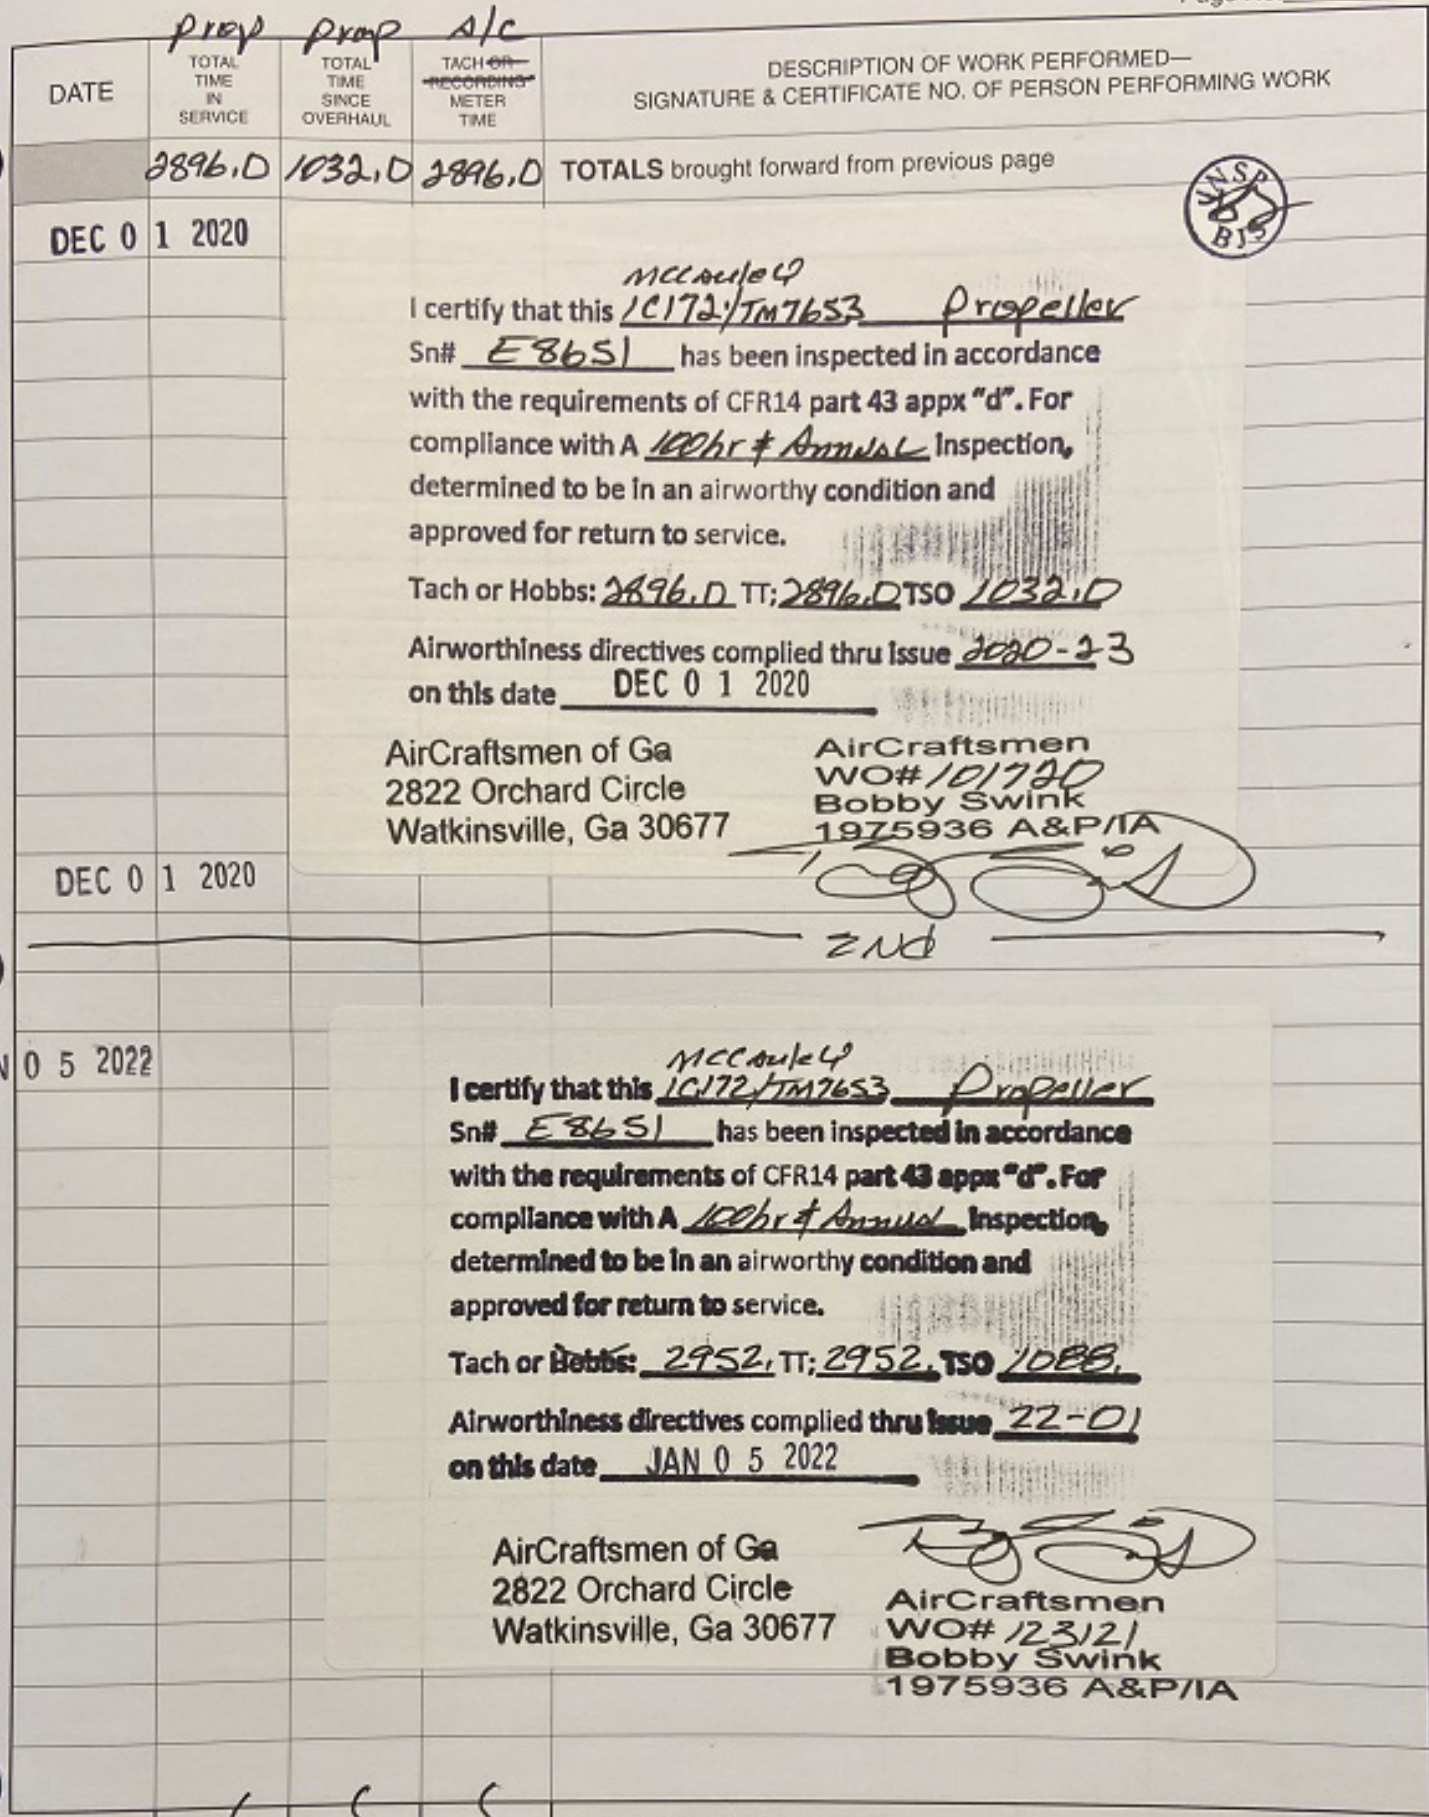 Prop Prop A/C
DATE
TOTAL TIME IN SERVICE
TOTAL TIME SINCE OVERHAUL
TACH OR RECORDING METER TIME
DESCRIPTION OF WORK PERFORMED—
SIGNATURE & CERTIFICATE NO. OF PERSON PERFORMING WORK
2896.0 1032.0 2896.0 TOTALS brought forward from previous page
INSP
BJS
DEC 0 1 2020
McCauley
I certify that this 1C172/TM7653 Propeller
Sn# E8651 has been inspected in accordance
with the requirements of CFR14 part 43 appx "d". For
compliance with A 100hr & Annual Inspection,
determined to be in an airworthy condition and
approved for return to service.
Tach or Hobbs: 2896.0 TT; 2896.0 TSO 1032.0
Airworthiness directives complied thru issue 2020-23
on this date DEC 0 1 2020
AirCraftsmen of Ga
2822 Orchard Circle
Watkinsville, Ga 30677
AirCraftsmen
WO# 101720
Bobby Swink
1975936 A&P/IA
DEC 0 1 2020
N 0 5 2022
McCauley
I certify that this 1C172/TM7653 Propeller
Sn# E8651 has been inspected in accordance
with the requirements of CFR14 part 43 appx "d". For
compliance with A 100hr & Annual Inspection,
determined to be in an airworthy condition and
approved for return to service.
Tach or Hobbs: 2952. TT; 2952. TSO 1088.
Airworthiness directives complied thru issue 22-01
on this date JAN 0 5 2022
AirCraftsmen of Ga
2822 Orchard Circle
Watkinsville, Ga 30677
AirCraftsmen
WO# 123121
Bobby Swink
1975936 A&P/IA